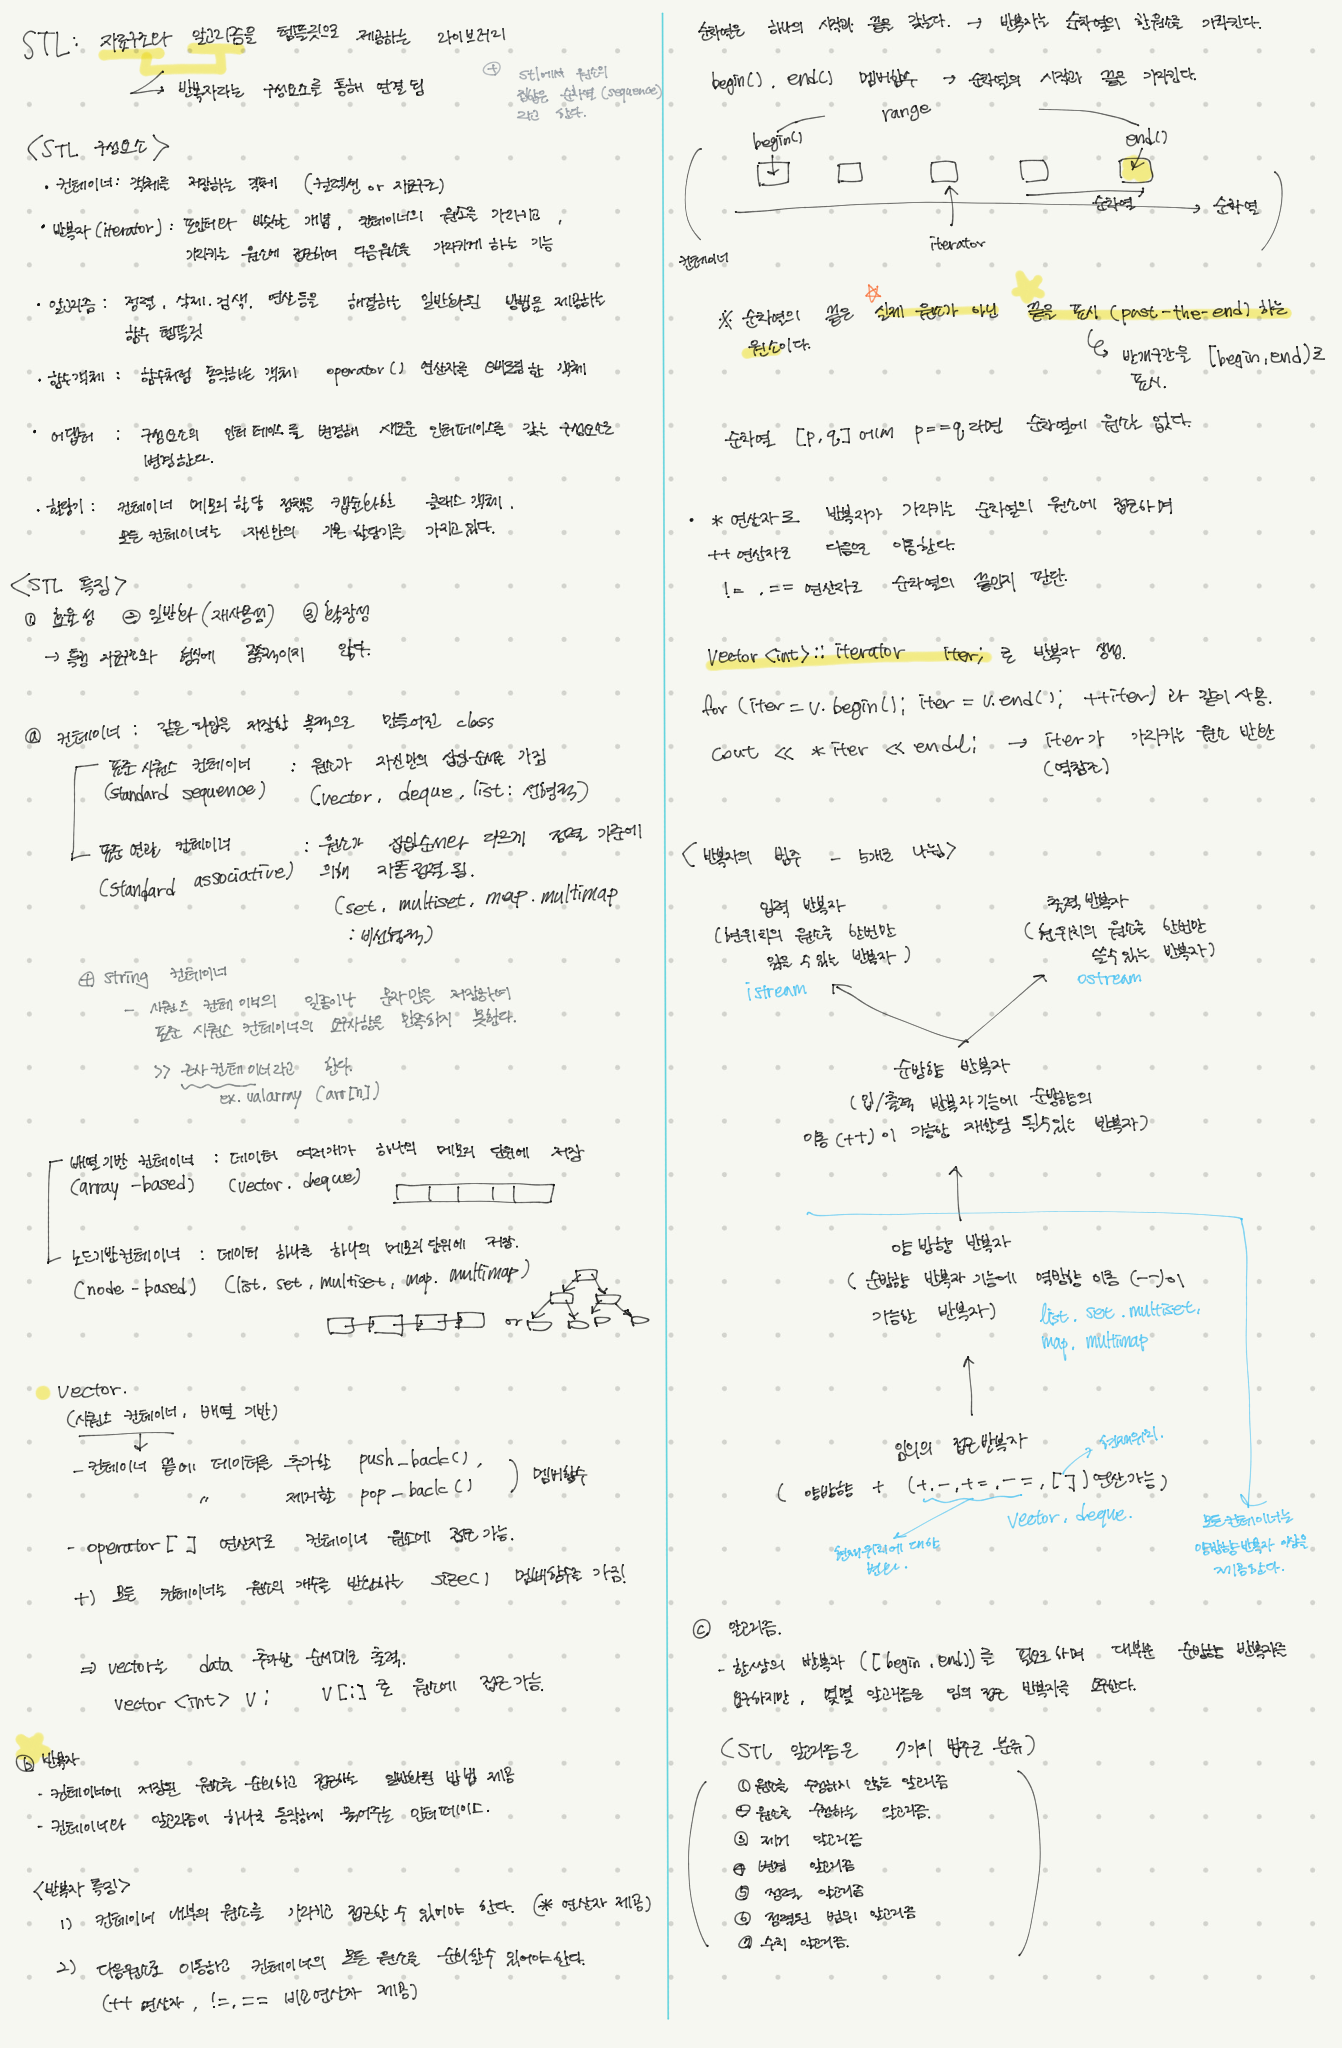 STL: 자료구조와 알고리즘을 템플릿으로 제공하는 라이브러리
반복자라는 구성요소를 통해 연결 됨
+ stl에서 원소의
집합은 순차열 (sequence)
라고 한다.
<STL 구성요소>
• 컨테이너: 객체를 저장하는 객체 (컬렉션 or 자료구조)
• 반복자 (iterator): 포인터와 비슷한 개념, 컨테이너의 원소를 가리키고,
가리키는 원소에 접근하여 다음원소를 가리키게 하는 기능
• 알고리즘: 정렬, 삭제, 검색, 연산 등을 해결하는 일반화된 방법을 제공하는
함수 템플릿
• 함수객체: 함수처럼 동작하는 객체 operator() 연산자를 오버로딩한 객체
• 어댑터: 구성요소의 인터페이스를 변경해 새로운 인터페이스를 갖는 구성요소로
변경한다.
• 할당기: 컨테이너 메모리 할당 정책을 캡슐화한 클래스 객체.
모든 컨테이너는 자신만의 기본 할당기를 가지고 있다.
<STL 특징>
① 효율성 ② 일반화 (재사용성) ③ 확장성
→ 특정 자료구조와 형식에 종속적이지 않다.
ⓐ 컨테이너: 같은 타입을 저장할 목적으로 만들어진 class
표준 시퀀스 컨테이너 : 원소가 자신만의 삽입순서를 가짐
(standard sequence) (vector, deque, list: 선형적)
표준 연관 컨테이너 : 원소가 삽입순서와 다르게 정렬 기준에
(standard associative) 의해 자동정렬 됨.
(set, multiset, map, multimap
: 비선형적)
+ string 컨테이너
- 시퀀스 컨테이너의 일종이나 문자만을 저장하여
표준 시퀀스 컨테이너의 요구사항을 만족하지 못한다.
>> 근사컨테이너라고 한다.
ex. valarray (arr[n])
배열기반 컨테이너 : 데이터 여러개가 하나의 메모리 단위에 저장
(array-based) (vector, deque)
노드기반컨테이너 : 데이터 하나를 하나의 메모리 단위에 저장.
(node-based) (list, set, multiset, map, multimap)
or
vector.
(시퀀스 컨테이너, 배열 기반)
- 컨테이너 끝에 데이터를 추가할 push_back(),
〃 제거할 pop_back() 멤버함수
- operator[ ] 연산자로 컨테이너 원소에 접근 가능.
+) 모든 컨테이너는 원소의 개수를 반환하는 size() 멤버함수를 가짐!
⇒ vector는 data 추가한 순서대로 출력.
vector <int> v; v[i]로 원소에 접근가능.
ⓑ 반복자
- 컨테이너에 저장된 원소를 순회하고 접근하는 일반화된 방법 제공
- 컨테이너와 알고리즘이 하나로 동작하게 묶어주는 인터페이스.
<반복자 특징>
1) 컨테이너 내부의 원소를 가리키고 접근할 수 있어야 한다. (* 연산자 제공)
2) 다음원소로 이동하고 컨테이너의 모든 원소를 순회할수 있어야한다.
(++ 연산자, !=, == 비교연산자 제공)
순차열은 하나의 시작과 끝을 갖는다. → 반복자는 순차열의 한원소를 가리킨다.
begin(), end() 멤버함수 → 순차열의 시작과 끝을 가리킨다.
range
begin() end()
순차열
순차열
iterator
컨테이너
※ 순차열의 끝은 실제 원소가 아닌 끝을 표시 (past-the-end) 하는
원소이다.
반개구간을 [begin, end)로
표시.
순차열 [p, q]에서 p==q라면 순차열에 원소는 없다.
• * 연산자로 반복자가 가리키는 순차열의 원소에 접근하며
++ 연산자로 다음으로 이동한다.
!=, == 연산자로 순차열의 끝인지 판단.
Vector<int>:: iterator iter; 로 반복자 생성.
for (iter = v.begin(); iter = v.end(); ++iter) 와 같이 사용.
cout << *iter << endl; → iter가 가리키는 원소 반환
(역참조)
<반복자의 범주 - 5개로 나뉨>
입력 반복자
(현위치의 원소를 한번만
읽을 수 있는 반복자)
istream
출력 반복자
(현위치의 원소를 한번만
쓸수 있는 반복자)
ostream
순방향 반복자
(입/출력 반복자 기능에 순방향의
이동(++)이 가능한 재할당 될수있는 반복자)
양방향 반복자
(순방향 반복자 기능에 역방향 이동 (--)이
가능한 반복자)
list, set, multiset,
map, multimap
임의의 접근 반복자
현재위치.
(양방향 + (+, -, +=, -=, [ ]) 연산가능)
vector, deque.
현재위치에 대한
모든 컨테이너는
양방향반복자 이상을
제공한다.
ⓒ 알고리즘.
- 한쌍의 반복자 ([begin, end))를 필요로 하며 대부분 순방향 반복자를
요구하지만, 몇몇 알고리즘은 임의 접근 반복자를 요구한다.
(STL 알고리즘은 7가지 범주로 분류)
① 원소를 수정하지 않는 알고리즘
② 원소를 수정하는 알고리즘.
③ 제거 알고리즘
④ 변경 알고리즘
⑤ 정렬 알고리즘
⑥ 정렬된 범위 알고리즘
⑦ 수치 알고리즘.